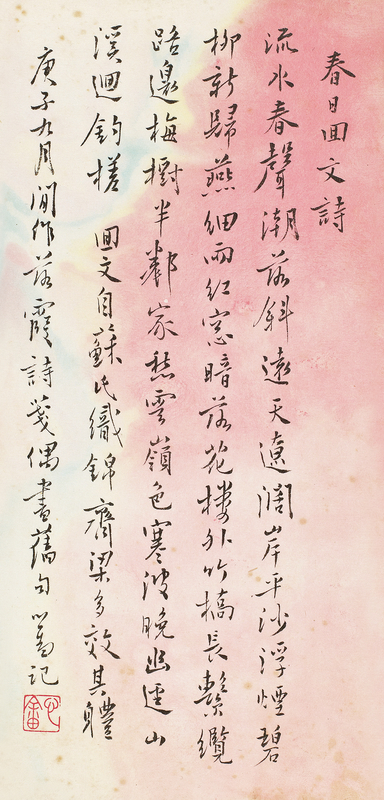 春日回文詩
流水春聲潮落斜遠天遼闊岸平沙浮煙碧
柳新歸燕細雨紅窓暗落花樓外竹橋長繫纜
路邊梅樹半鄰家愁雲嶺色寒波晚幽逕山
溪迴釣槎 回文自蘇氏織錦齊梁多效其體
庚子九月閒作落霞詩箋偶書舊句 心畬記
心畬